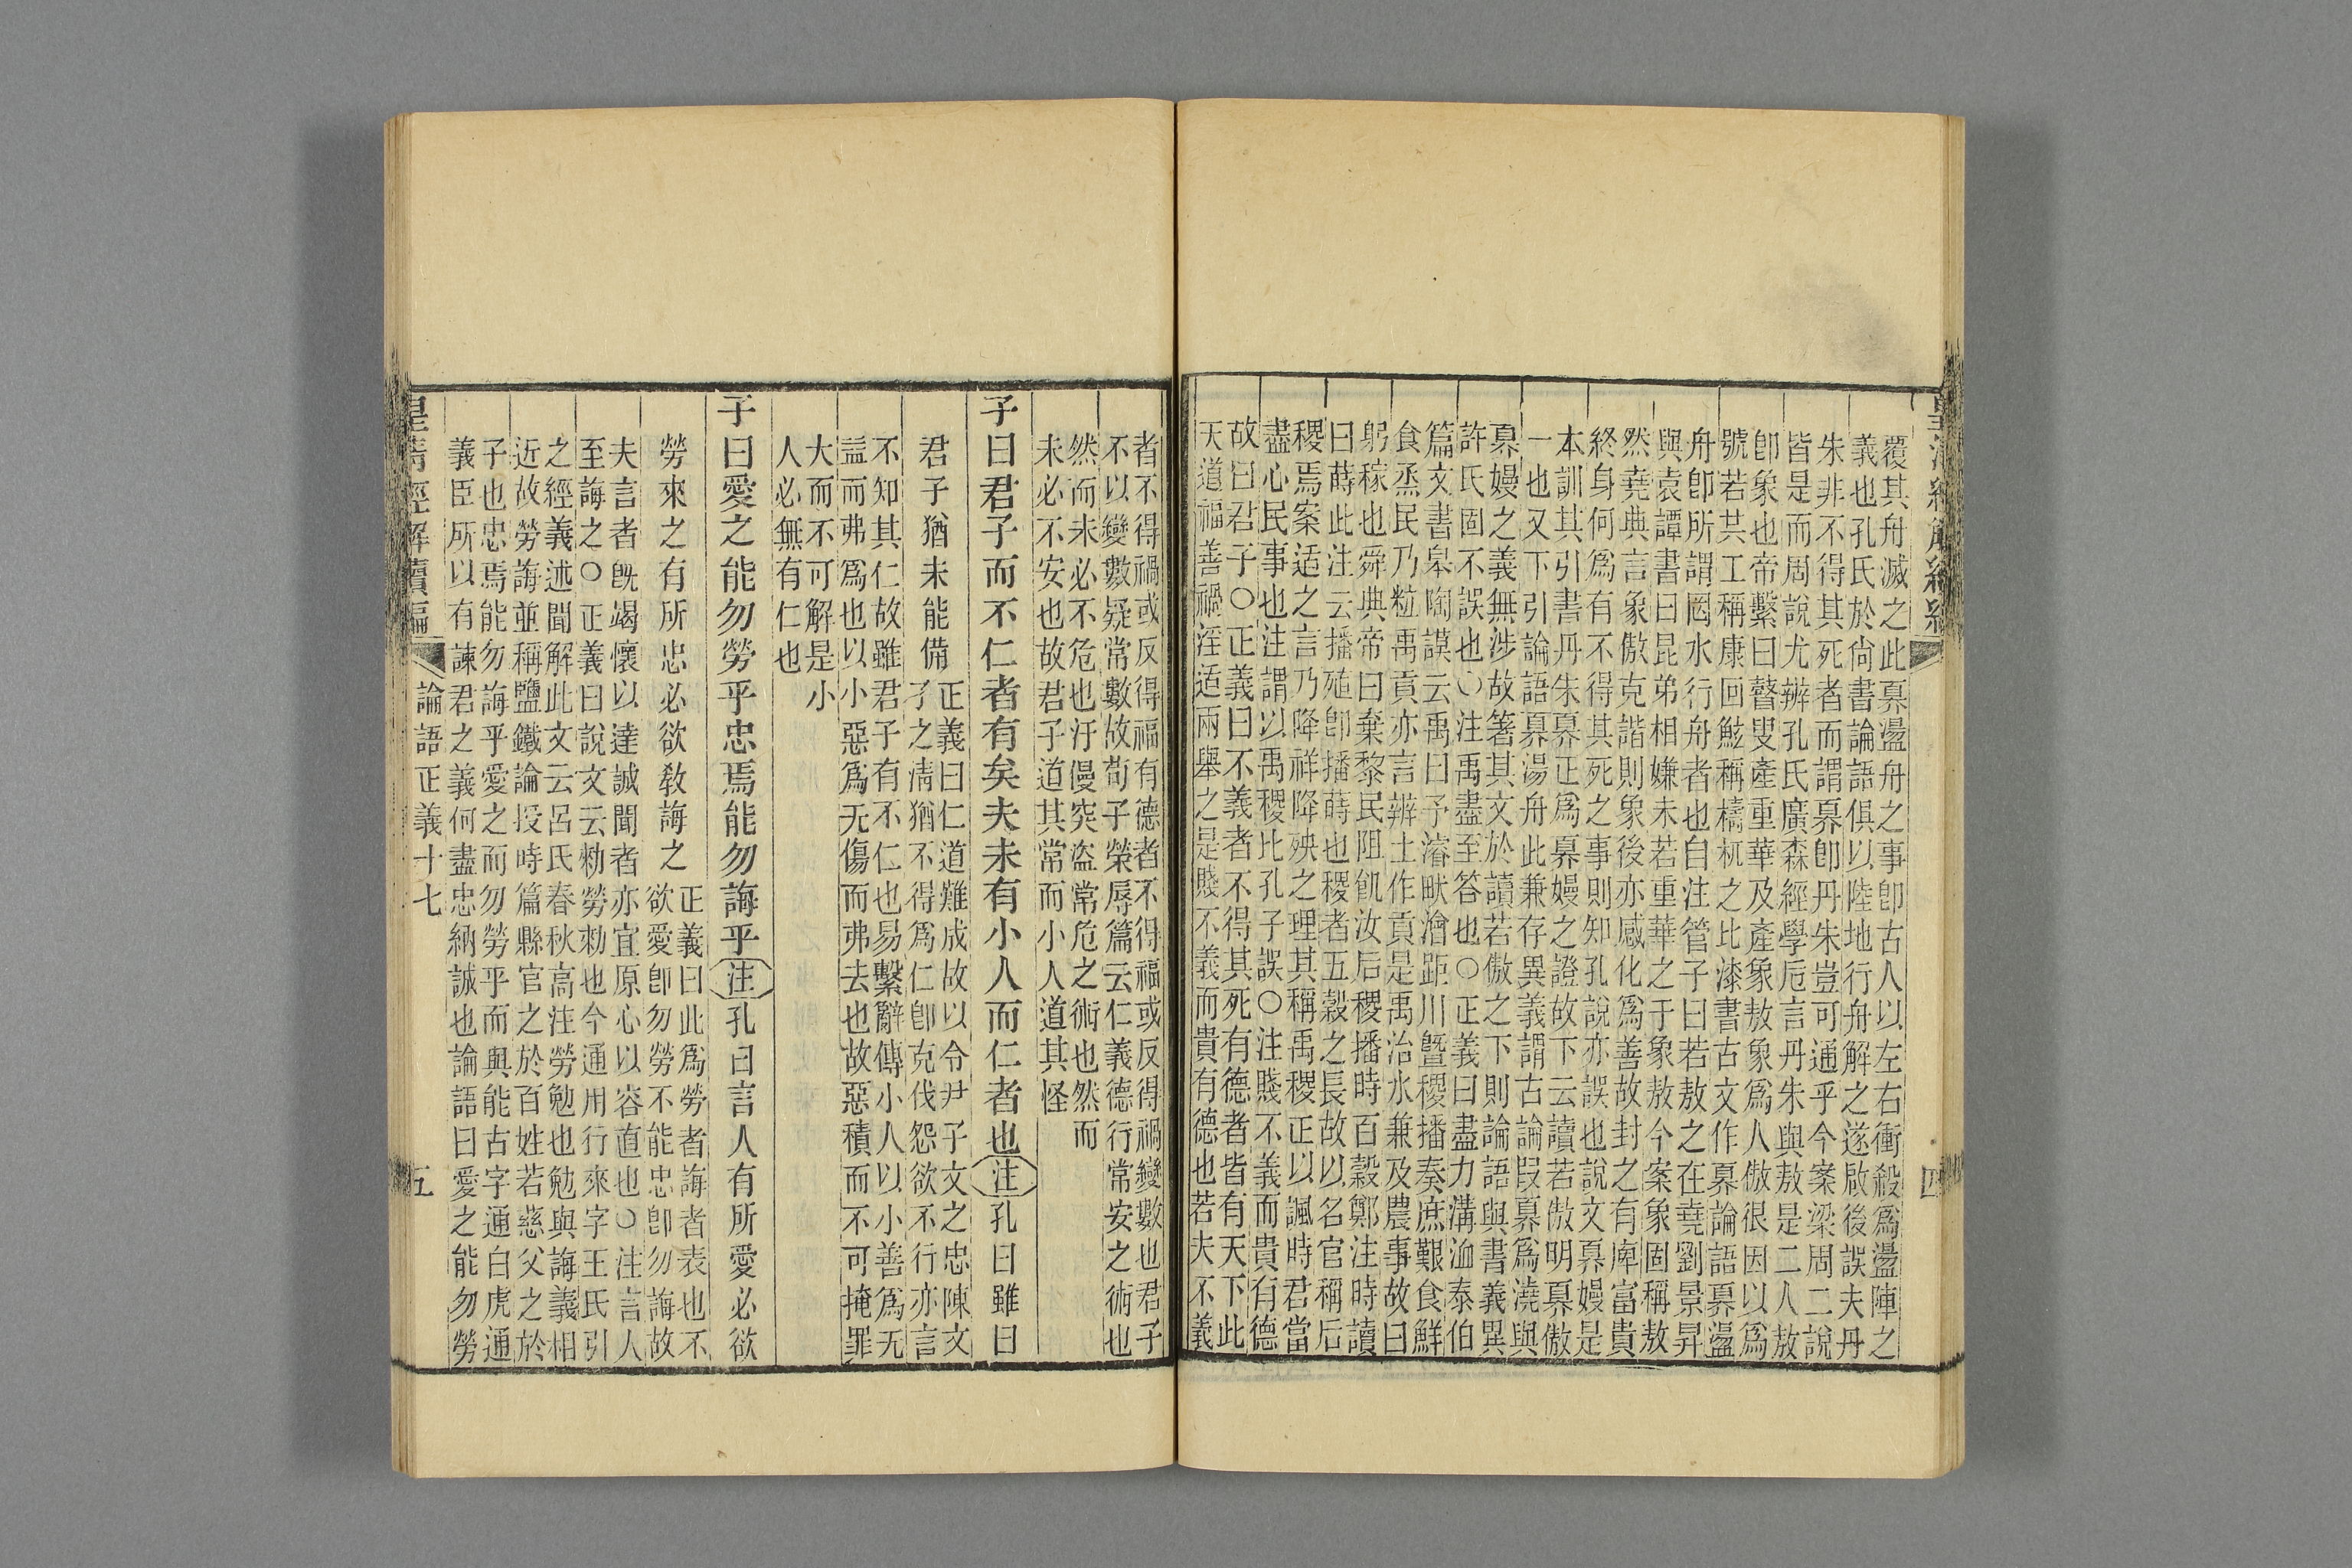 覆其舟滅之此奡盪舟之事卽古人以左右衝殺爲盪陣之
義也孔氏於尙書論語俱以陸地行舟解之遂啟後誤夫丹
朱非不得其死者而謂奡卽丹朱豈可通乎今案梁周二說
皆是而周說尤辨孔氏廣森經學卮言丹朱與敖是二人敖
卽象也帝繫曰瞽叟產重華及產象敖象爲人傲很因以爲
號若共工稱康回鮌稱檮杌之比漆書古文作奡論語奡盪
舟卽所謂罔水行舟者也自注管子曰若敖之在堯劉景昇
與袁譚書曰昆弟相嫌未若重華之于象敖今案象固稱敖
然堯典言象傲克諧則象後亦感化爲善故封之有庳富貴
終身何爲有不得其死之事則知孔說亦誤也說文奡嫚是
本訓其引書丹朱奡正爲奡嫚之證故下云讀若傲明奡傲
一也又下引論語奡湯舟此兼存異義謂古論叚奡爲澆與
奡嫚之義無涉故箸其文於讀若傲之下則論語與書義異
許氏固不誤也○注禹盡至答也○正義曰盡力溝洫泰伯
篇文書皋陶謨云禹曰予濬畎澮距川曁稷播奏庶艱食鮮
食烝民乃粒禹貢亦言辨土作貢是禹治水兼及農事故曰
躬稼也舜典帝曰棄黎民阻飢汝后稷播時百穀鄭注時讀
曰蒔此注云播殖卽播蒔也稷者五穀之長故以名官稱后
稷焉案适之言乃降祥降殃之理其稱禹稷正以諷時君當
盡心民事也注謂以禹稷比孔子誤○注賤不義而貴有德
故曰君子○正義曰不義者不得其死有德者皆有天下此
天道福善禍淫适兩舉之是賤不義而貴有德也若夫不義
者不得禍或反得福有德者不得福或反得禍變數也君子
不以變數疑常數故荀子榮辱篇云仁義德行常安之術也
然而未必不危也汙僈突盜常危之術也然而
未必不安也故君子道其常而小人道其怪
子曰君子而不仁者有矣夫未有小人而仁者也注孔曰雖曰
君子猶未能備
正義曰仁道難成故以令尹子文之忠陳文
子之淸猶不得爲仁卽克伐怨欲不行亦言
不知其仁故雖君子有不仁也易繫辭傳小人以小善爲无
益而弗爲也以小惡爲无傷而弗去也故惡積而不可掩罪
大而不可解是小
人必無有仁也
子曰愛之能勿勞乎忠焉能勿誨乎注孔曰言人有所愛必欲
勞來之有所忠必欲敎誨之
正義曰此爲勞者誨者表也不
欲愛卽勿勞不能忠卽勿誨故
夫言者旣竭懷以達誠聞者亦宜原心以容直也○注言人
至誨之○正義曰說文云勑勞勑也今通用行來字王氏引
之經義述聞解此文云呂氏春秋高注勞勉也勉與誨義相
近故勞誨並稱鹽鐵論授時篇縣官之於百姓若慈父之於
子也忠焉能勿誨乎愛之而勿勞乎而與能古字通白虎通
義臣所以有諫君之義何盡忠納誠也論語曰愛之能勿勞
皇淸經解續編
論語正義十七
五